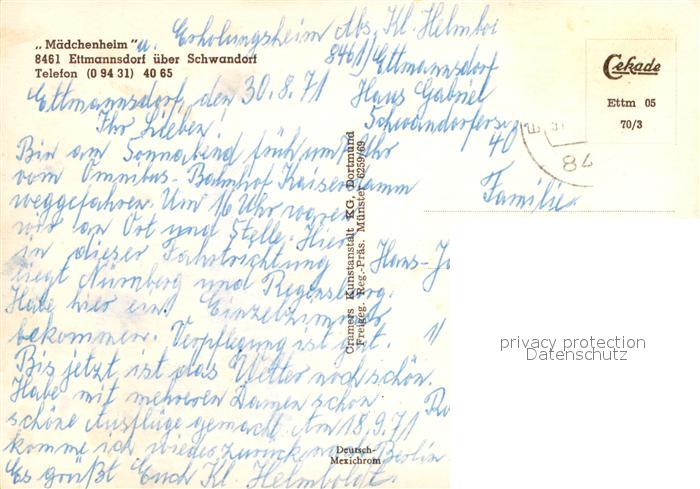 „Mädchenheim" u. Erholungsheim Abs. Kl. Helmbol
8461 Ettmannsdorf über Schwandorf
Telefon (0 94 31) 40 65
8461) Ettmannsdorf
Haus Gabriel
Schwandorferstr.
40
Cekade
Ettm 05
70/3
84
Familie
Hans-J
1/
Ettmannsdorf, den 30.8.71
Ihr Lieben!
Bin am Sonnabend früh um Uhr
vom Omnibus-Bahnhof Kaiserdamm
weggefahren. Um 16 Uhr waren
wir an Ort und Stelle. Hier
in dieser Fahrtrichtung
liegt Nürnberg und Regensburg.
Habe hier ein Einzelzimmer
bekommen. Verpflegung ist gut.
Bis jetzt ist das Wetter noch schön.
Habe mit mehreren Damen schon
schöne Ausflüge gemacht. Am 18.9.71
komme ich wieder zurück nach Berlin
Es grüßt Euch Kl. Helmboldt.
Cramers Kunstanstalt KG, Dortmund
Freigeg. Reg.-Präs. Münster 6259/69
Deutsch-
Mexichrom
privacy protection
Datenschutz